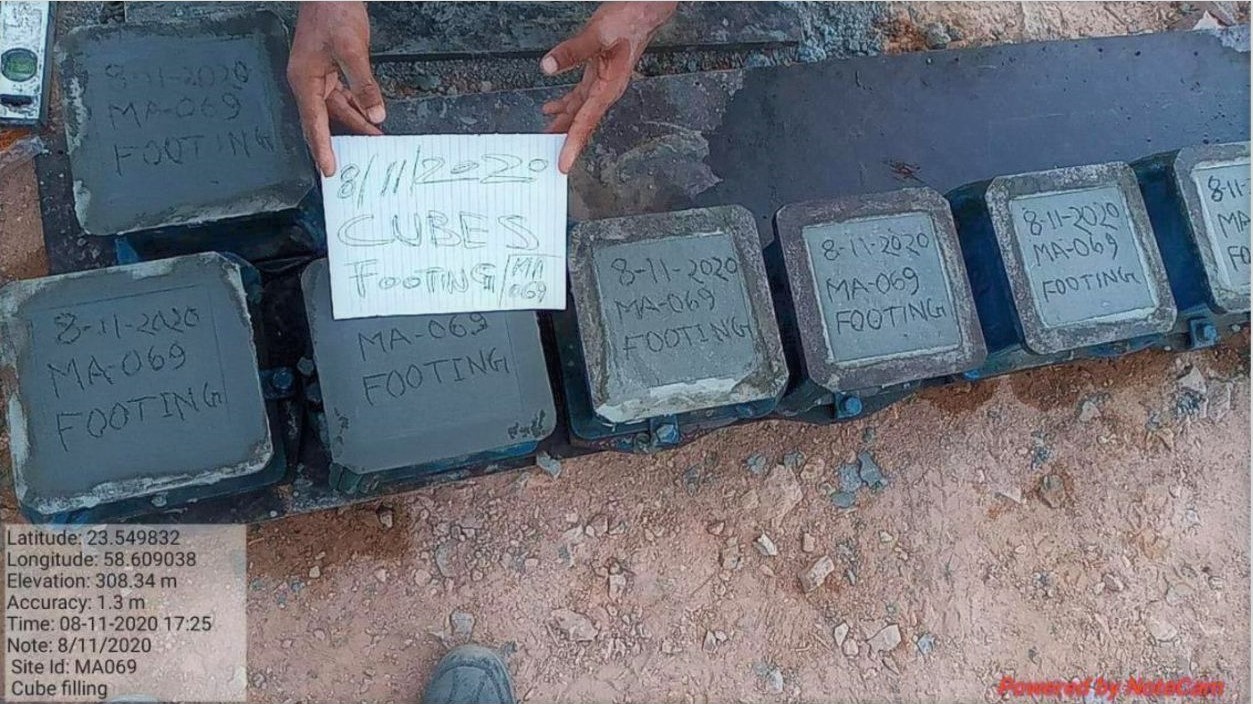 8-11-2020
MA-069
FOOTING
8/11/2020
CUBES
FOOTING MA
069
8-11-2020
MA-069
FOOTING
MA-069
FOOTING
8-11-2020
MA-069
FOOTING
8-11-2020
MA-069
FOOTING
8-11-2020
MA-069
FOOTING
8-11-
MA
FO
Latitude: 23.549832
Longitude: 58.609038
Elevation: 308.34 m
Accuracy: 1.3 m
Time: 08-11-2020 17:25
Note: 8/11/2020
Site Id: MA069
Cube filling
Powered by NoteCam